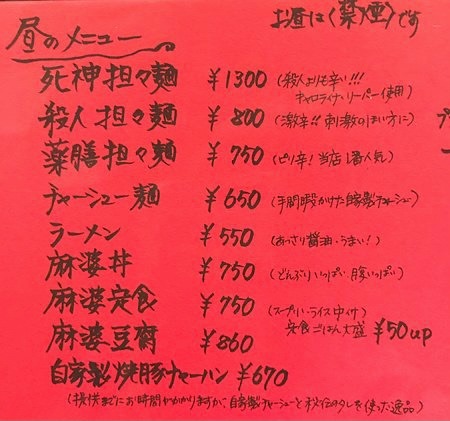 お昼は〈禁煙〉です
昼のメニュー
死神担々麺 ¥1300 (殺人よりも辛い!!! キャロライナ・リーパー使用)
殺人担々麺 ¥800 (激辛!! 刺激のほしい方に)
薬膳担々麺 ¥750 (ピリ辛! 当店1番人気)
チャーシュー麺 ¥650 (手間暇かけた自家製チャーシュー)
ラーメン ¥550 (あっさり醤油・うまい!)
麻婆丼 ¥750 (どんぶりいっぱい 腹いっぱい)
麻婆定食 ¥750 (スープ・ライス 付)
定食ごはん大盛 ¥50up
麻婆豆腐 ¥860
自家製焼豚チャーハン ¥670
(提供までにお時間かかりますが、自家製チャーシューと秘伝のタレを使った逸品)